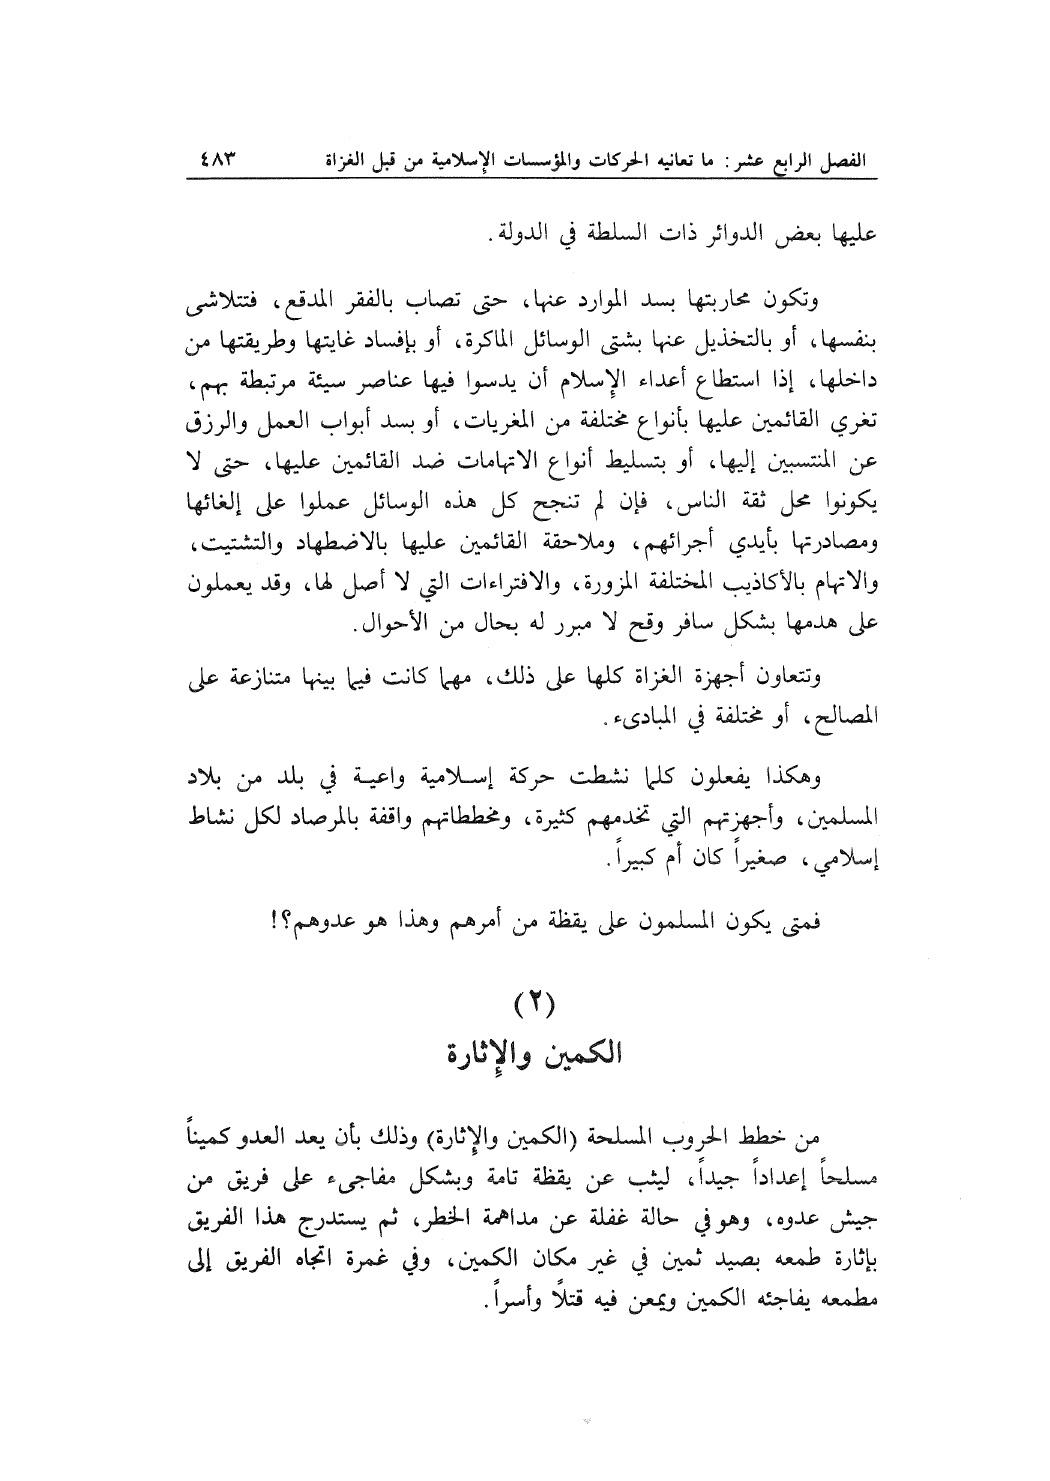 الفصل الرابع عشر : ما تعانيه الحركات والمؤسسات الإسلامية من قبل الغزاة ٤٨٣
عليها بعض الدوائر ذات السلطة في الدولة .
وتكون محاربتها بسد الموارد عنها، حتى تصاب بالفقر المدقع، فتتلاشى
بنفسها، أو بالتخذيل عنها بشتى الوسائل الماكرة، أو بإفساد غايتها وطريقتها من
داخلها، إذا استطاع أعداء الإسلام أن يدسوا فيها عناصر سيئة مرتبطة بهم،
تغري القائمين عليها بأنواع مختلفة من المغريات، أو بسد أبواب العمل والرزق
عن المنتسبين إليها، أو بتسليط أنواع الاتهامات ضد القائمين عليها، حتى لا
يكونوا محل ثقة الناس، فإن لم تنجح كل هذه الوسائل عملوا على إلغائها
ومصادرتها بأيدي أجرائهم، وملاحقة القائمين عليها بالاضطهاد والتشتيت،
والاتهام بالأكاذيب المختلفة المزورة، والافتراءات التي لا أصل لها، وقد يعملون
على هدمها بشكل سافر وقح لا مبرر له بحال من الأحوال.
وتتعاون أجهزة الغزاة كلها على ذلك، مهما كانت فيما بينها متنازعة على
المصالح، أو مختلفة في المبادىء.
وهكذا يفعلون كلما نشطت حركة إسلامية واعية في بلد من بلاد
المسلمين، وأجهزتهم التي تخدمهم كثيرة، ومخططاتهم واقفة بالمرصاد لكل نشاط
إسلامي، صغيراً كان أم كبيراً.
فمتى يكون المسلمون على يقظة من أمرهم وهذا هو عدوهم؟!
(٢)
الكمين والإثارة
من خطط الحروب المسلحة (الكمين والإثارة) وذلك بأن يعد العدو كميناً
مسلحاً إعداداً جيداً، ليثب عن يقظة تامة وبشكل مفاجىء على فريق من
جيش عدوه، وهو في حالة غفلة عن مداهمة الخطر، ثم يستدرج هذا الفريق
بإثارة طمعه بصيد ثمين في غير مكان الكمين، وفي غمرة اتجاه الفريق إلى
مطمعه يفاجئه الكمين ويمعن فيه قتلاً وأسراً.